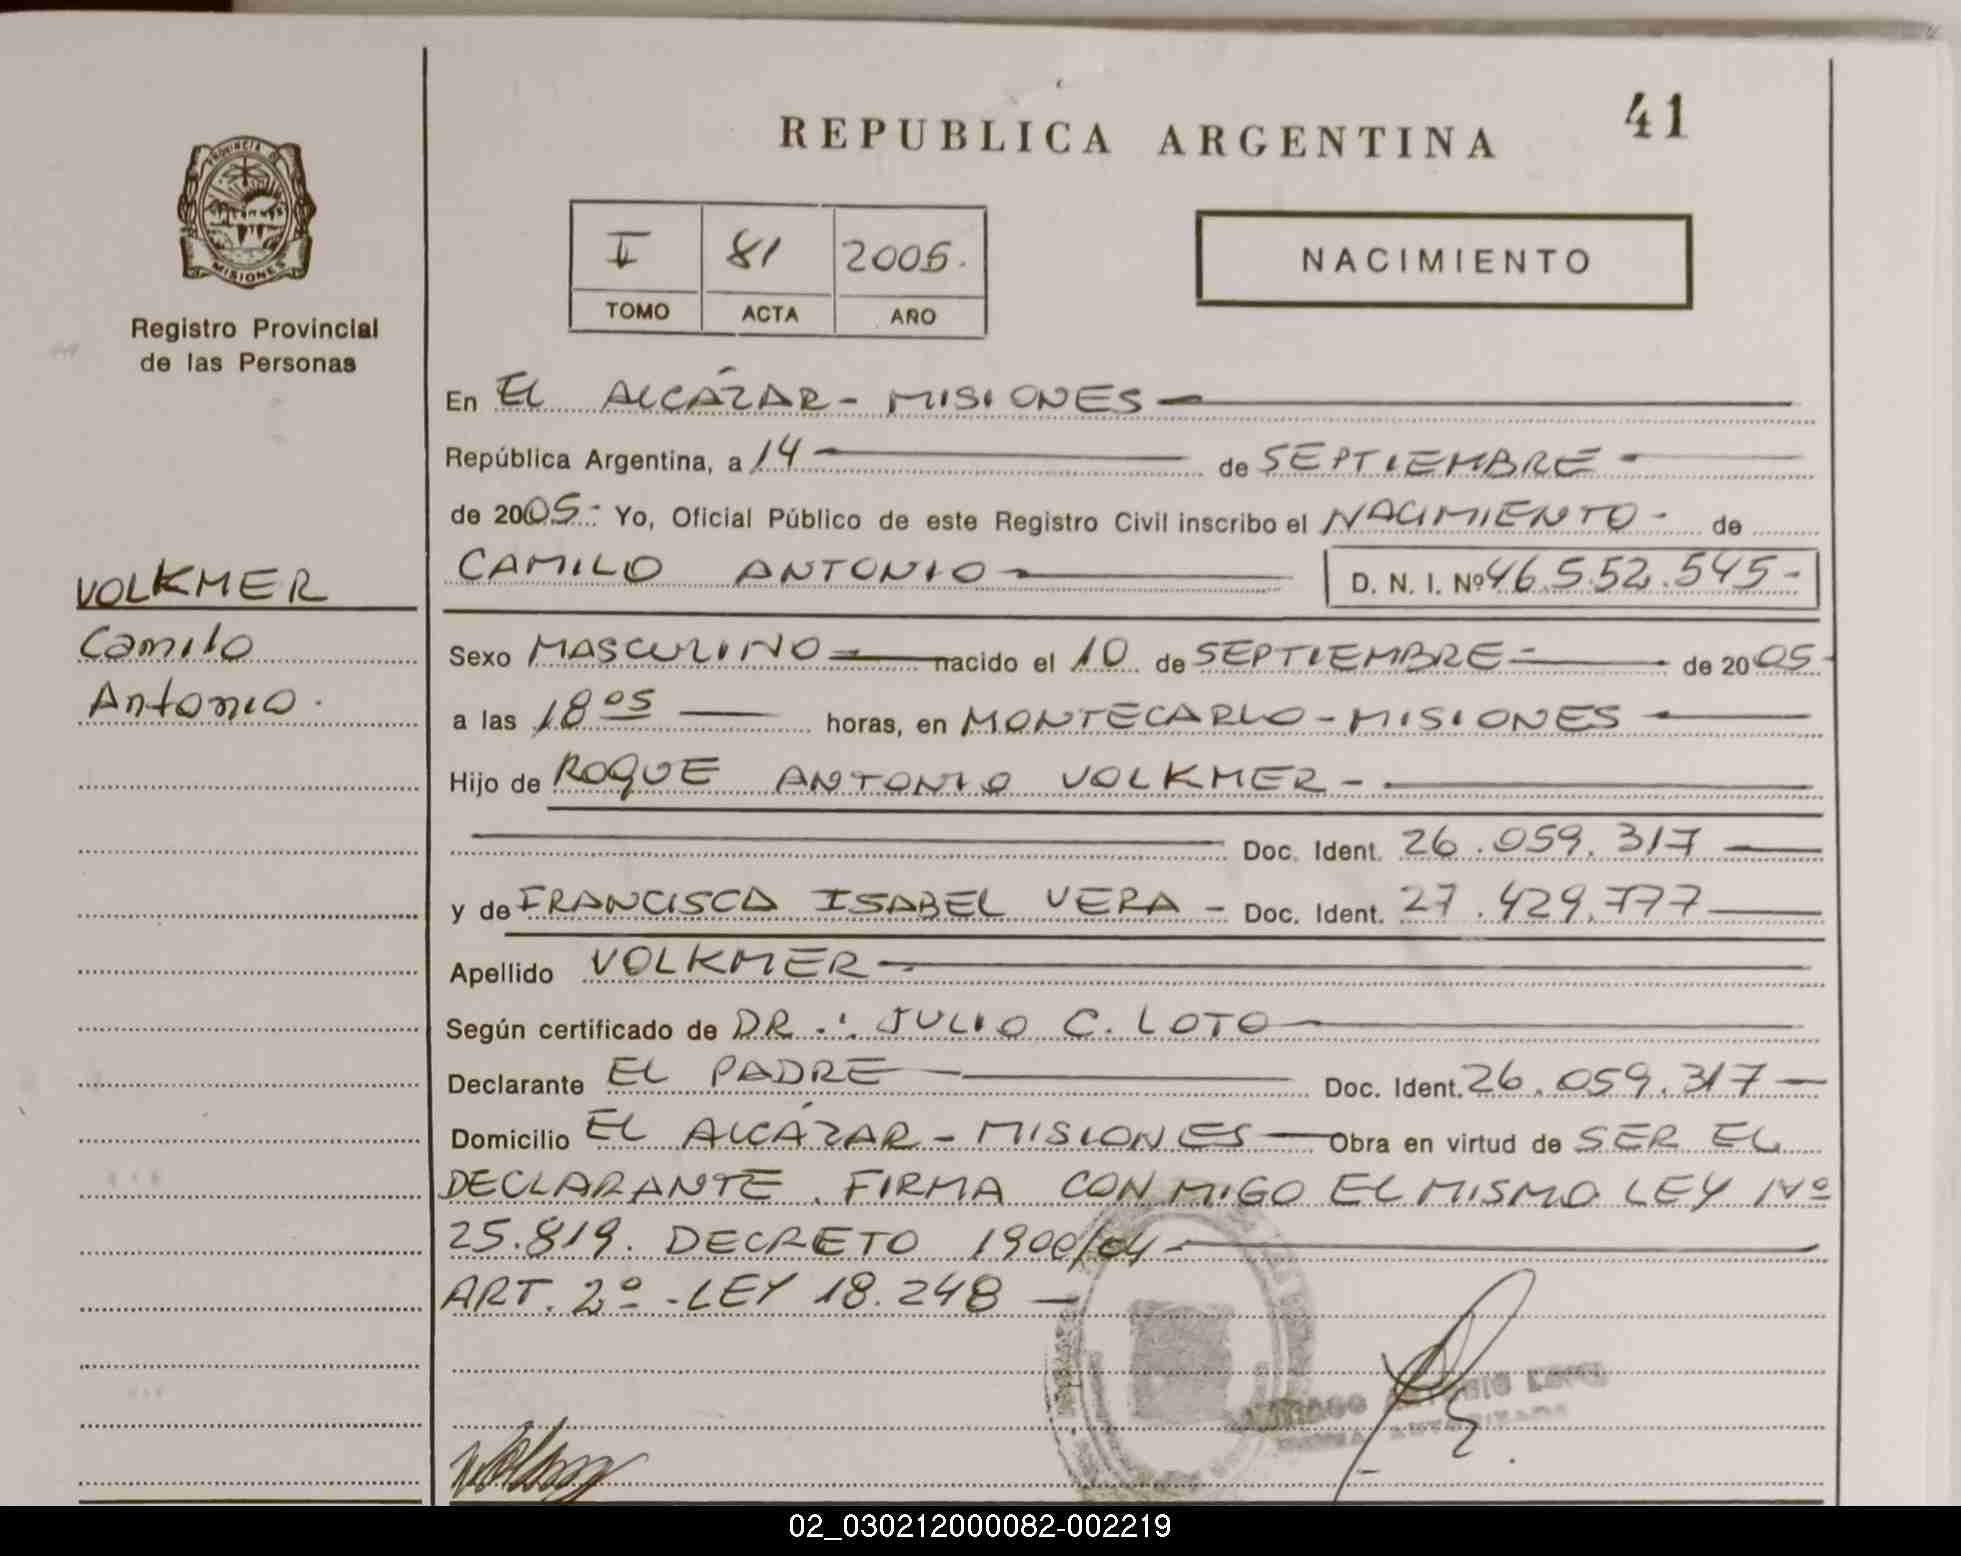 41
REPUBLICA ARGENTINA
PROVINCIA DE
MISIONES
Registro Provincial
de las Personas
I 81 2005.
TOMO ACTA AÑO
NACIMIENTO
VOLKMER
Camilo
Antonio.
En EL ALCÁZAR - MISIONES
República Argentina, a 14 de SEPTIEMBRE -
de 2005.- Yo, Oficial Público de este Registro Civil inscribo el NACIMIENTO - de
CAMILO ANTONIO D. N. I. Nº 46.552.545-
Sexo MASCULINO nacido el 10 de SEPTIEMBRE de 2005-
a las 18 05 horas, en MONTECARLO - MISIONES
Hijo de ROQUE ANTONIO VOLKMER -
Doc. Ident. 26.059.317
y de FRANCISCA ISABEL VERA - Doc. Ident. 27.429.777
Apellido VOLKMER
Según certificado de DR.: JULIO C. LOTO
Declarante EL PADRE Doc. Ident. 26.059.317
Domicilio EL ALCÁZAR - MISIONES Obra en virtud de SER EL
DECLARANTE. FIRMA CONMIGO EL MISMO LEY Nº
25.819. DECRETO 1900/04
ART. 2º - LEY 18.248
02_030212000082-002219